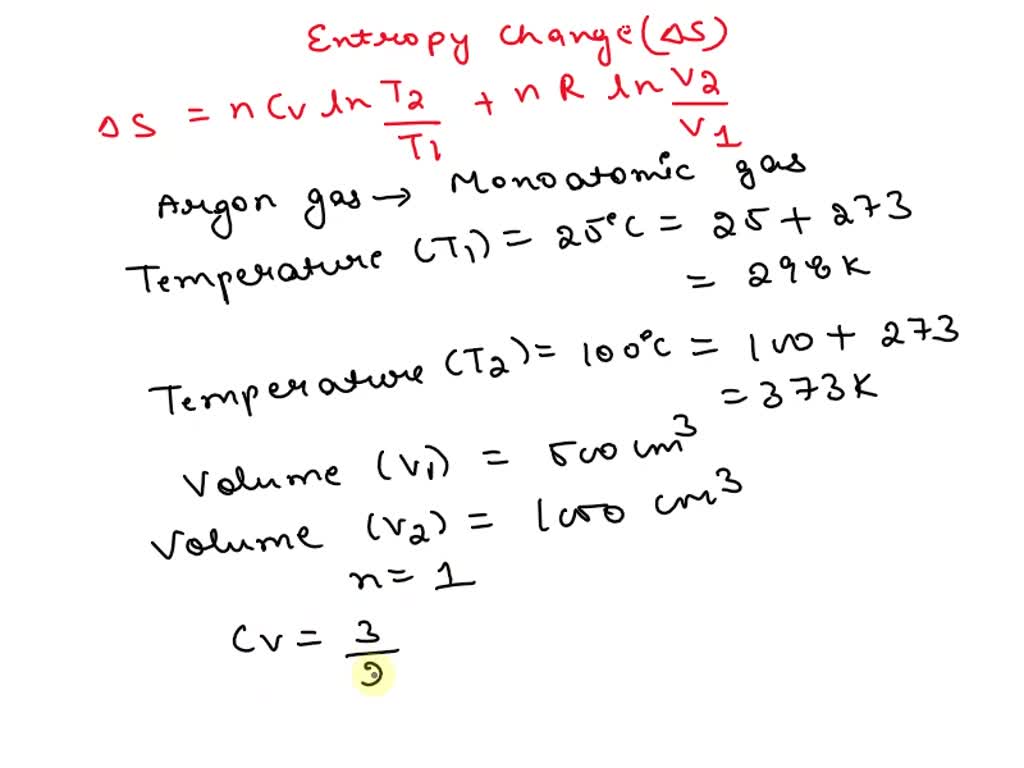 Entropy Change (ΔS)
ΔS = n Cv ln T2/T1 + n R ln V2/V1
Argon gas → Monoatomic gas
Temperature (T1) = 25°C = 25 + 273
= 298K
Temperature (T2) = 100°C = 100 + 273
= 373K
Volume (V1) = 500 cm³
Volume (V2) = 1000 cm³
n = 1
Cv = 3/2